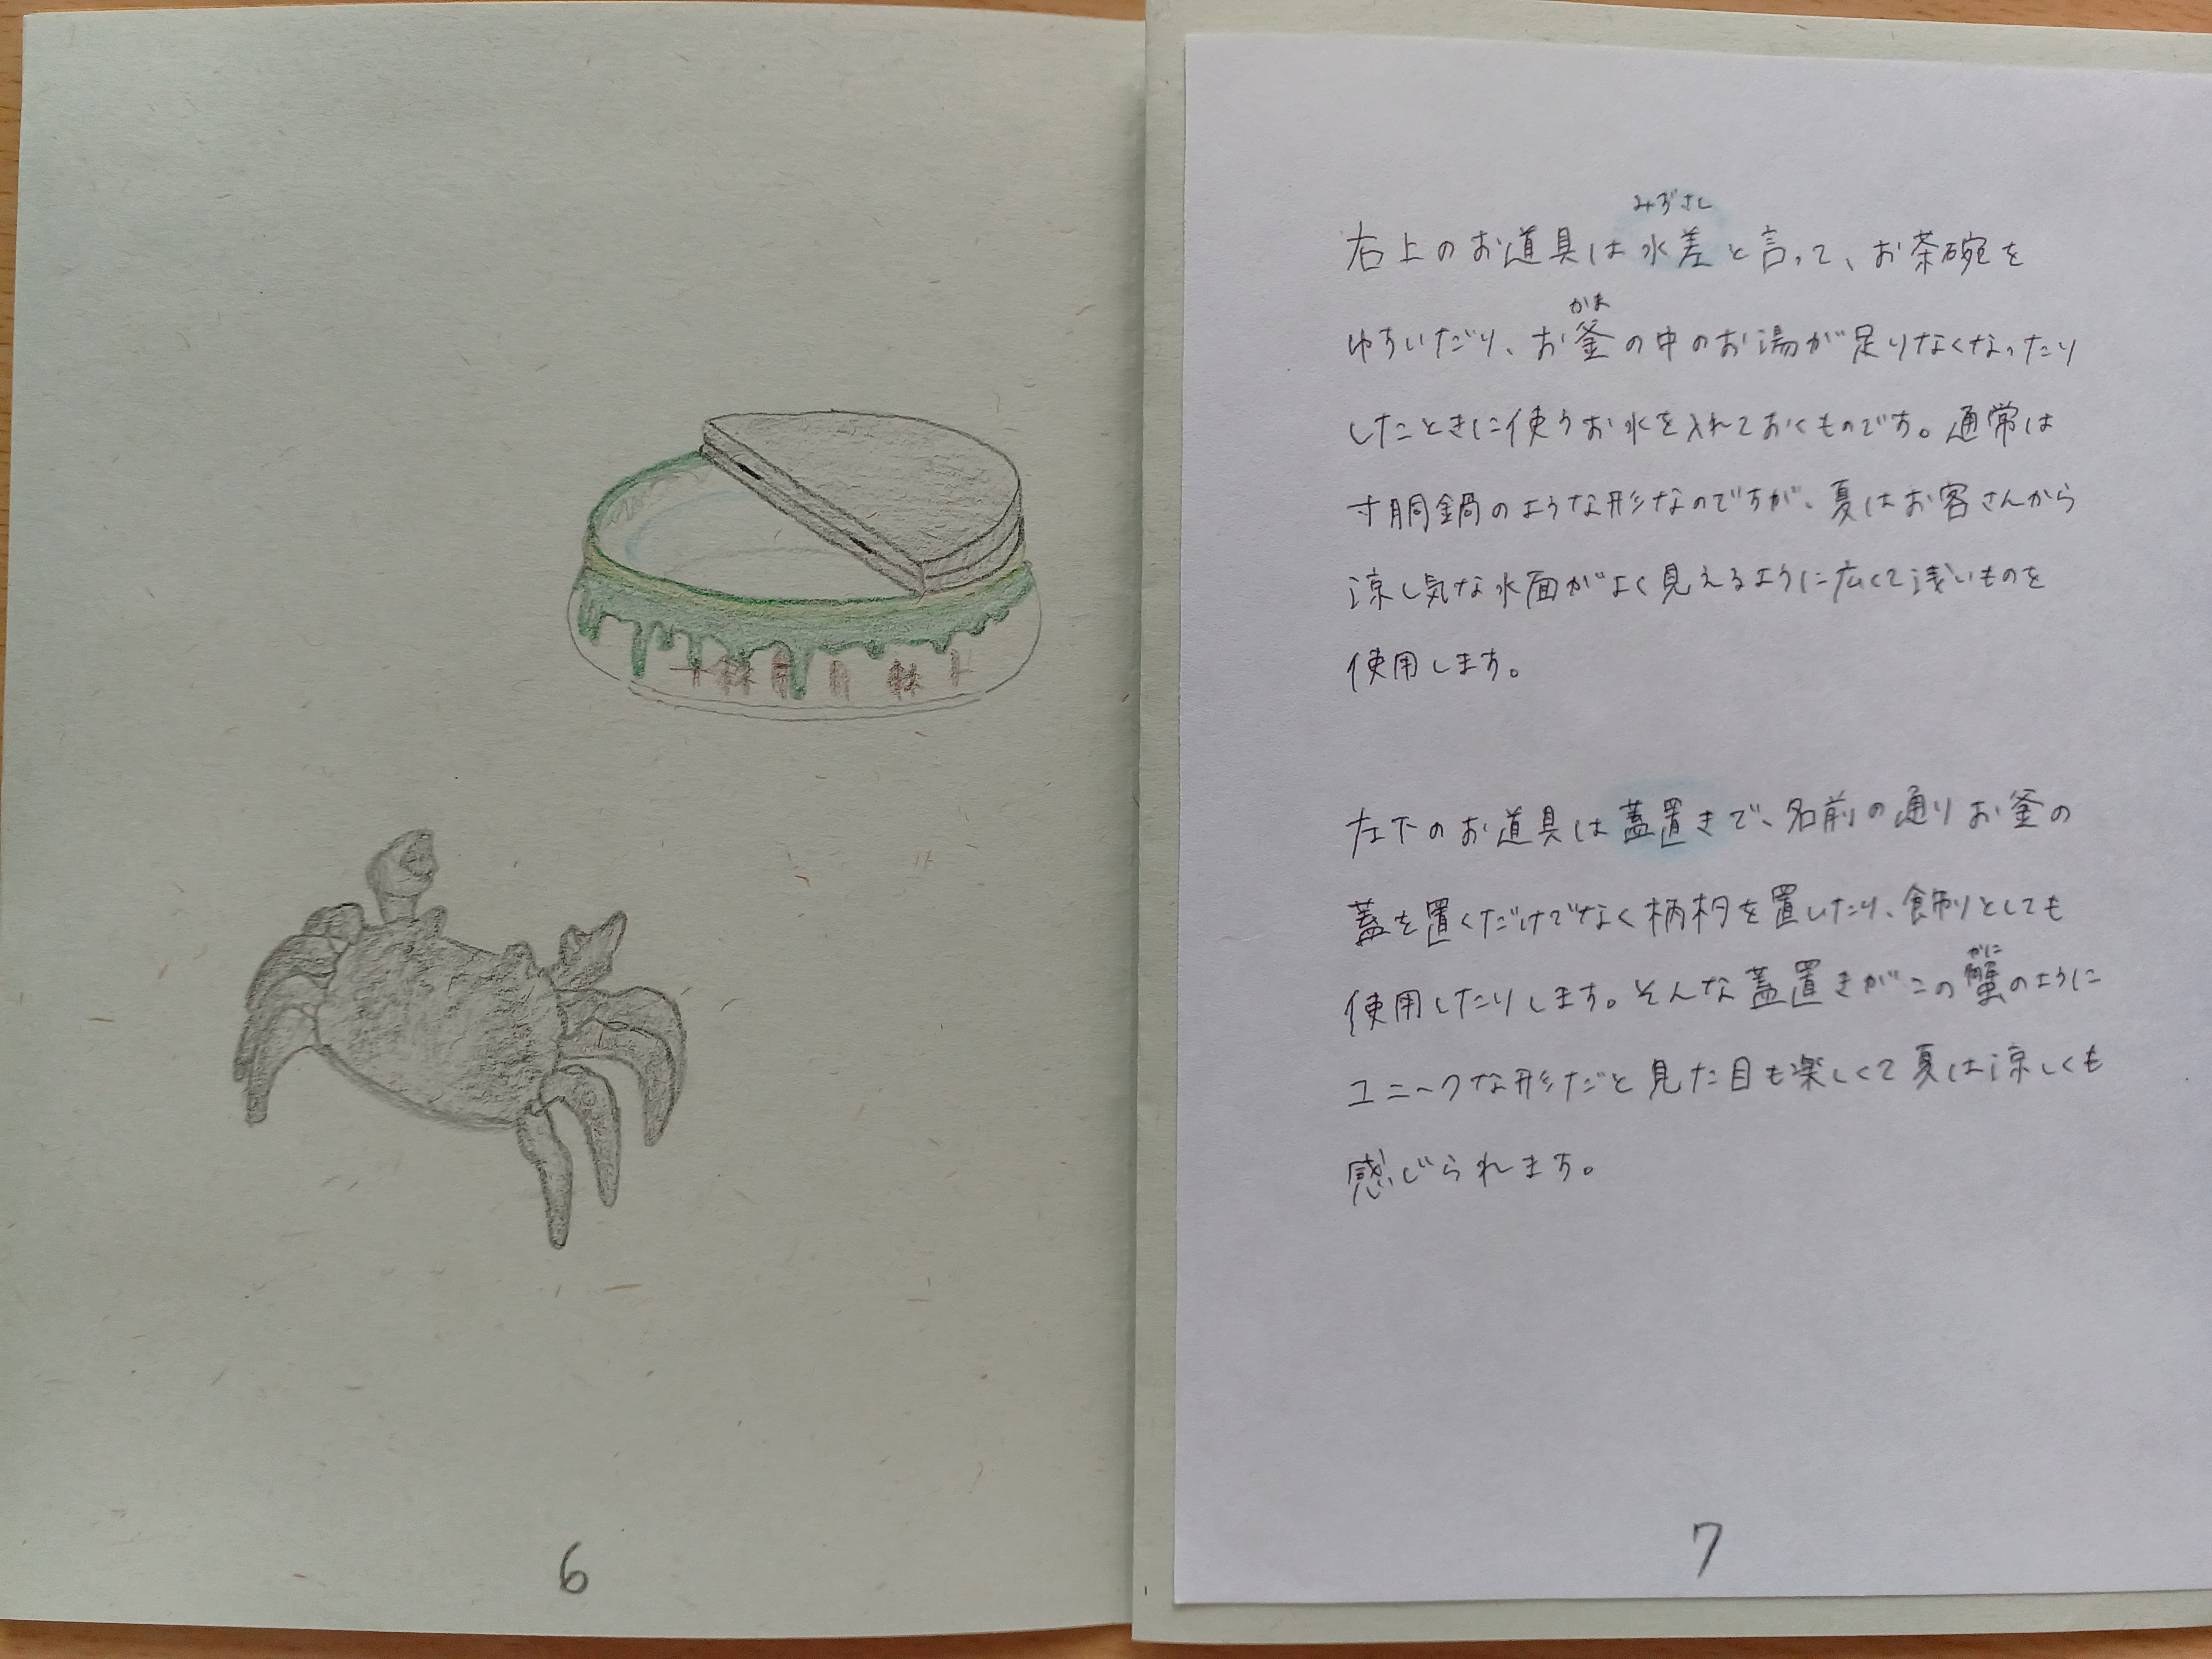 みずさし
右上のお道具は水差と言って、お茶碗を
かま
ゆすいだり、お釜の中のお湯が足りなくなったり
したときに使うお水を入れておくものです。通常は
寸胴鍋のような形なのですが、夏はお客さんから
涼し気な水面がよく見えるように広くて浅いものを
使用します。
左下のお道具は蓋置きで、名前の通りお釜の
蓋を置くだけでなく柄杓を置いたり、飾りとしても
かに
使用したりします。そんな蓋置きがこの蟹のように
ユニークな形だと見た目も楽しくて夏は涼しくも
感じられます。
6
7